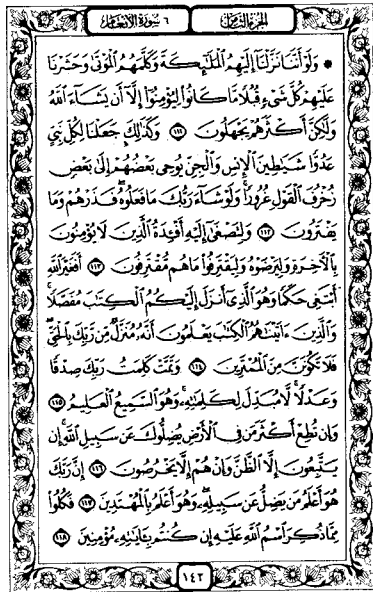 الجزء الثامن
٦ سورة الأنعام
۞ وَلَوْ أَنَّنَا نَزَّلْنَا إِلَيْهِمُ الْمَلَٰئِكَةَ وَكَلَّمَهُمُ الْمَوْتَىٰ وَحَشَرْنَا
عَلَيْهِمْ كُلَّ شَيْءٍ قُبُلًا مَّا كَانُوا لِيُؤْمِنُوا إِلَّا أَن يَشَاءَ اللَّهُ
وَلَٰكِنَّ أَكْثَرَهُمْ يَجْهَلُونَ ١١١ وَكَذَٰلِكَ جَعَلْنَا لِكُلِّ نَبِيٍّ
عَدُوًّا شَيَاطِينَ الْإِنسِ وَالْجِنِّ يُوحِي بَعْضُهُمْ إِلَىٰ بَعْضٍ
زُخْرُفَ الْقَوْلِ غُرُورًا ۚ وَلَوْ شَاءَ رَبُّكَ مَا فَعَلُوهُ ۖ فَذَرْهُمْ وَمَا
يَفْتَرُونَ ١١٢ وَلِتَصْغَىٰ إِلَيْهِ أَفْئِدَةُ الَّذِينَ لَا يُؤْمِنُونَ
بِالْآخِرَةِ وَلِيَرْضَوْهُ وَلِيَقْتَرِفُوا مَا هُم مُّقْتَرِفُونَ ١١٣ أَفَغَيْرَ اللَّهِ
أَبْتَغِي حَكَمًا وَهُوَ الَّذِي أَنزَلَ إِلَيْكُمُ الْكِتَٰبَ مُفَصَّلًا ۚ
وَالَّذِينَ ءَاتَيْنَٰهُمُ الْكِتَٰبَ يَعْلَمُونَ أَنَّهُ مُنَزَّلٌ مِّن رَّبِّكَ بِالْحَقِّ ۖ
فَلَا تَكُونَنَّ مِنَ الْمُمْتَرِينَ ١١٤ وَتَمَّتْ كَلِمَتُ رَبِّكَ صِدْقًا
وَعَدْلًا ۚ لَّا مُبَدِّلَ لِكَلِمَٰتِهِ ۚ وَهُوَ السَّمِيعُ الْعَلِيمُ ١١٥
وَإِن تُطِعْ أَكْثَرَ مَن فِي الْأَرْضِ يُضِلُّوكَ عَن سَبِيلِ اللَّهِ ۚ إِن
يَتَّبِعُونَ إِلَّا الظَّنَّ وَإِنْ هُمْ إِلَّا يَخْرُصُونَ ١١٦ إِنَّ رَبَّكَ
هُوَ أَعْلَمُ مَن يَضِلُّ عَن سَبِيلِهِ ۖ وَهُوَ أَعْلَمُ بِالْمُهْتَدِينَ ١١٧ فَكُلُوا
مِمَّا ذُكِرَ اسْمُ اللَّهِ عَلَيْهِ إِن كُنتُم بِـَٔايَٰتِهِ مُؤْمِنِينَ ١١٨
١٤٢